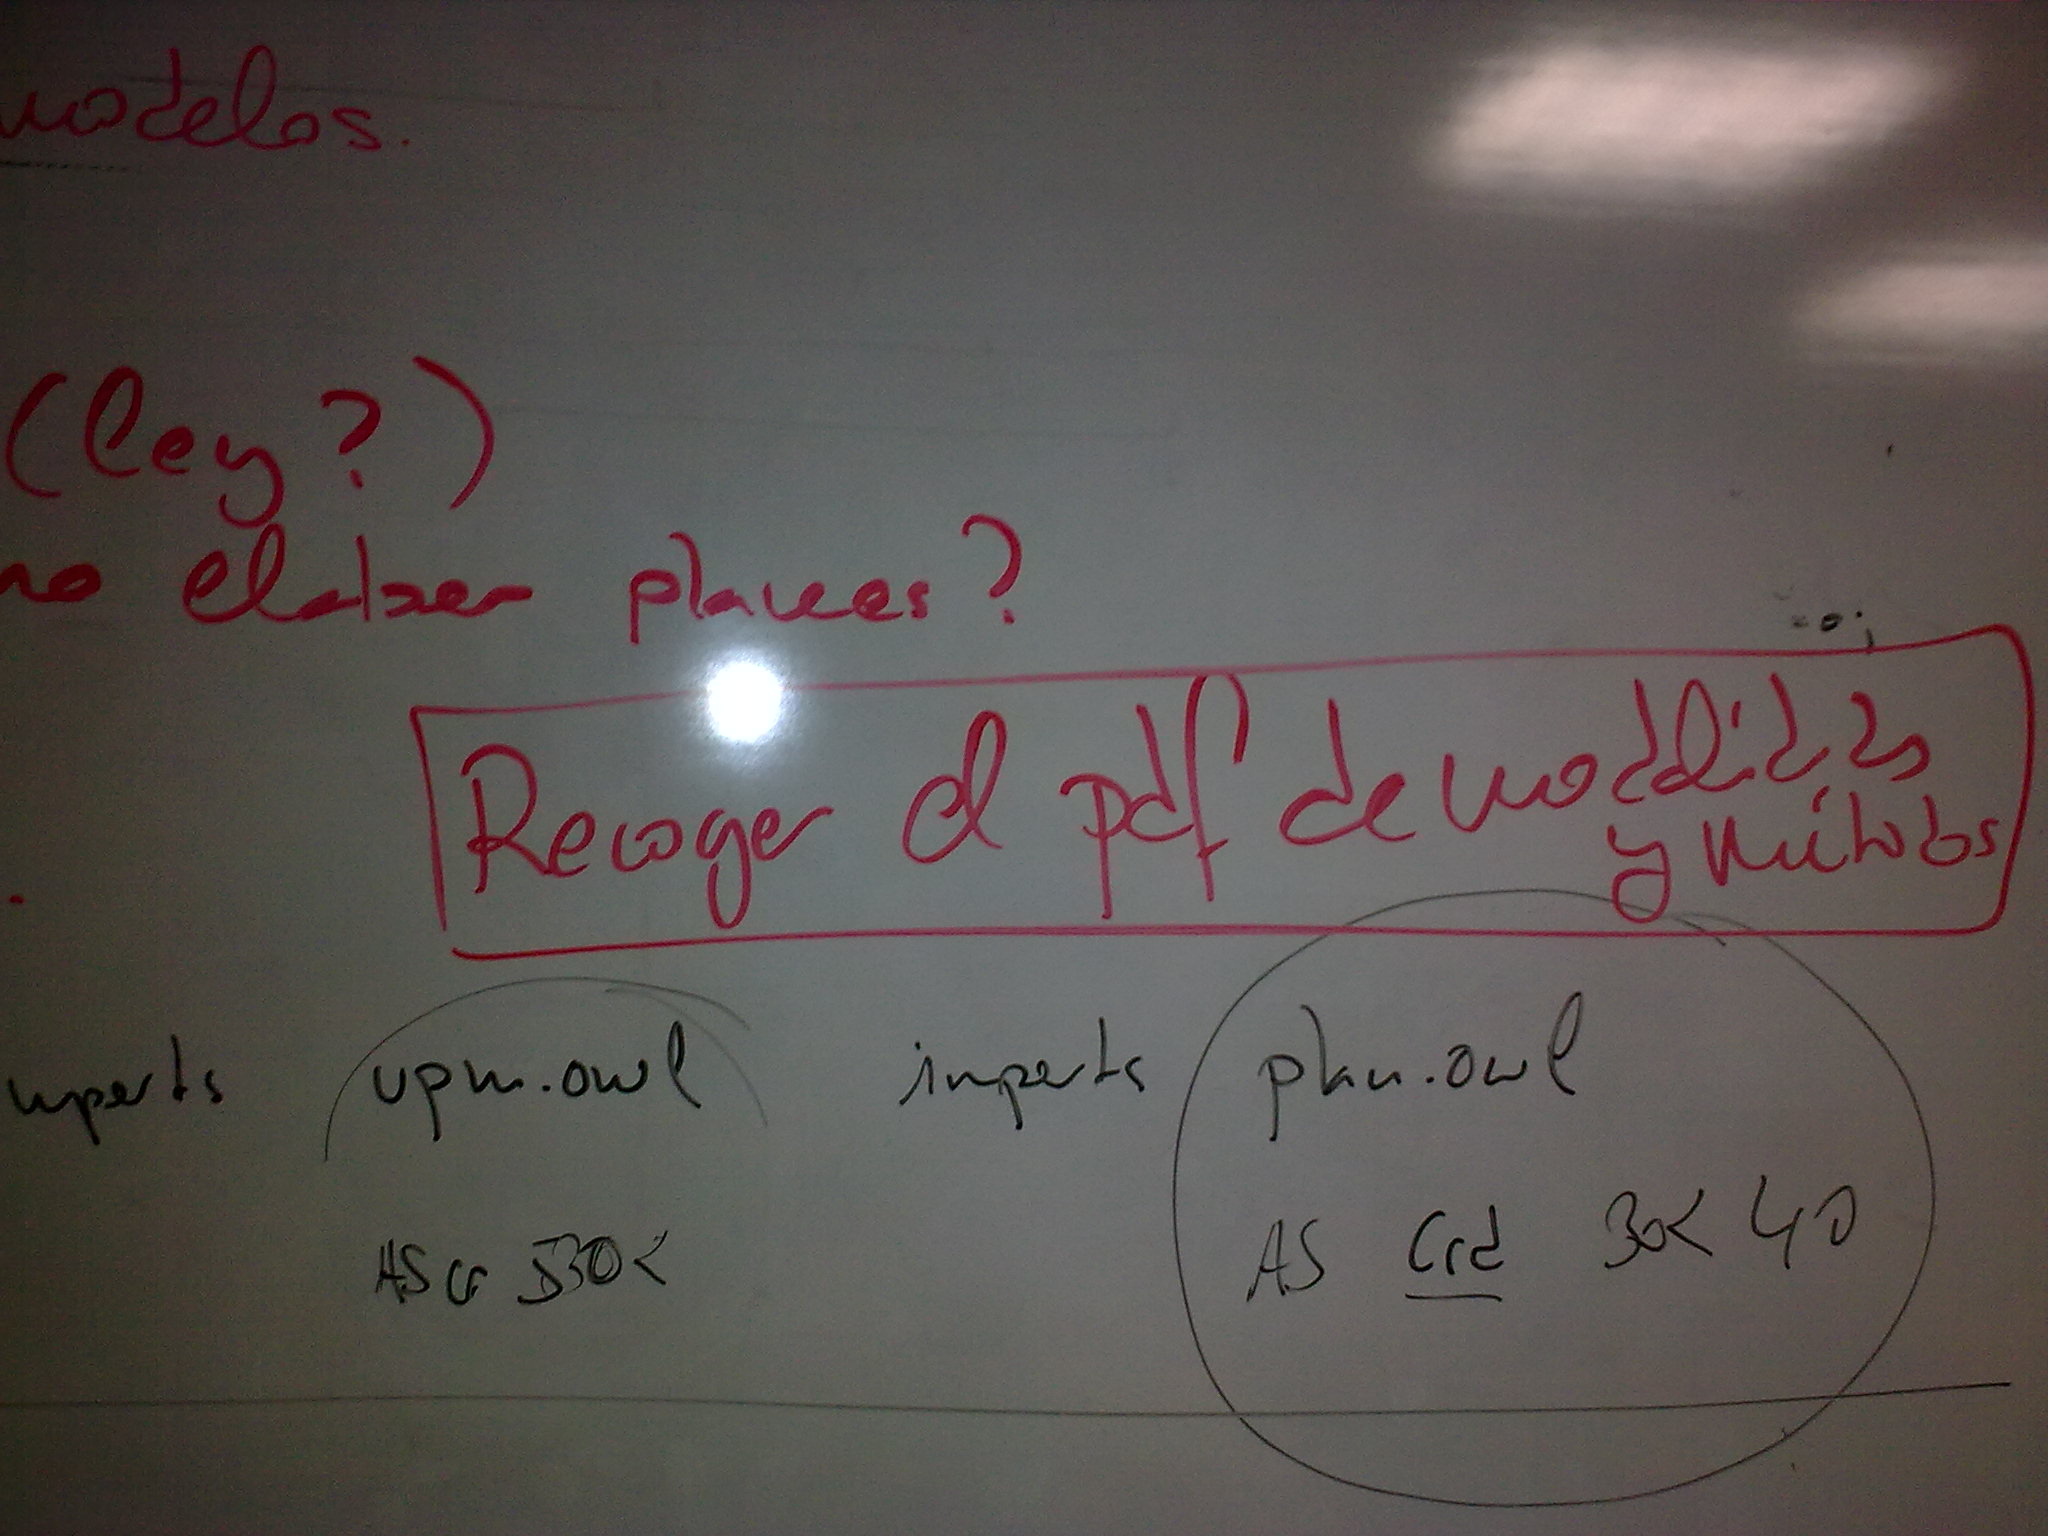 modelos.
(ley?)
no elaborar planes?
Recoger el pdf de modalidades
y métodos
imports upm.owl imports plan.owl
AS 30< AS Crd 30< 40